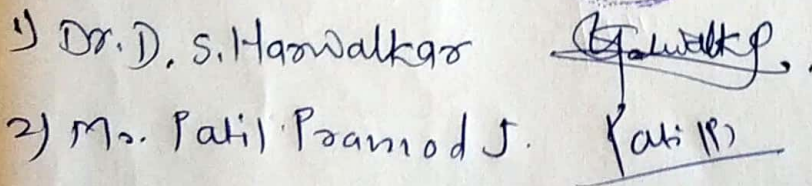 1) Dr. D. S. Harwalkar
2) Mr. Patil Pramod J.